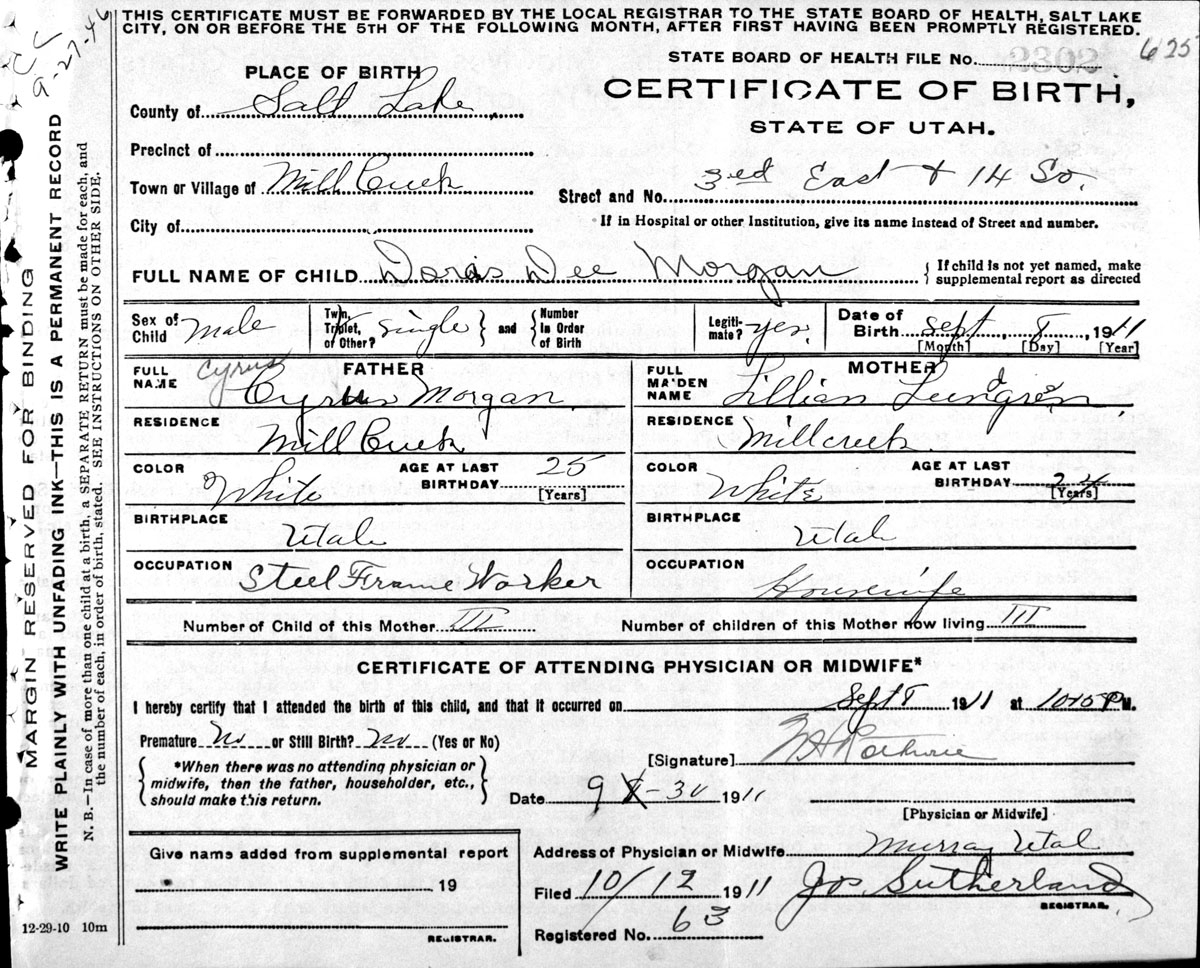 THIS CERTIFICATE MUST BE FORWARDED BY THE LOCAL REGISTRAR TO THE STATE BOARD OF HEALTH, SALT LAKE
CITY, ON OR BEFORE THE 5TH OF THE FOLLOWING MONTH, AFTER FIRST HAVING BEEN PROMPTLY REGISTERED.
9-27-46
STATE BOARD OF HEALTH FILE NO. 2302 625
PLACE OF BIRTH
CERTIFICATE OF BIRTH,
STATE OF UTAH.
County of Salt Lake
Precinct of
Town or Village of Mill Creek
Street and No. 3rd East & 14 So.
City of
If in Hospital or other Institution, give its name instead of Street and number.
FULL NAME OF CHILD Doris Dee Morgan
If child is not yet named, make
supplemental report as directed
Sex of Child Male
Twin, Triplet, or Other? Single and Number in Order of Birth
Legitimate? yes
Date of Birth Sept 8, 1911
[Month] [Day] [Year]
FATHER
FULL NAME Cyrus Cyrus Morgan
RESIDENCE Mill Creek
COLOR White
AGE AT LAST BIRTHDAY 25
[Years]
BIRTHPLACE Utah
OCCUPATION Steel Frame Worker
MOTHER
FULL MAIDEN NAME Lillian Lundgren
RESIDENCE Millcreek
COLOR White
AGE AT LAST BIRTHDAY 24
[Years]
BIRTHPLACE Utah
OCCUPATION Housewife
Number of Child of this Mother III
Number of children of this Mother now living III
CERTIFICATE OF ATTENDING PHYSICIAN OR MIDWIFE*
I hereby certify that I attended the birth of this child, and that it occurred on Sept 8 1911 at 1045 P M.
Premature No or Still Birth? No (Yes or No)
*When there was no attending physician or
midwife, then the father, householder, etc.,
should make this return.
[Signature]
Date 9-30 1911
[Physician or Midwife]
Give name added from supplemental report
19
REGISTRAR.
Address of Physician or Midwife Murray Utah
Filed 10/12 1911 Jos. Sutherland
REGISTRAR.
Registered No. 63
12-29-10 10m
MARGIN RESERVED FOR BINDING
WRITE PLAINLY WITH UNFADING INK—THIS IS A PERMANENT RECORD
N. B.—In case of more than one child at a birth, a SEPARATE RETURN must be made for each, and
the number of each, in order of birth, stated. SEE INSTRUCTIONS ON OTHER SIDE.